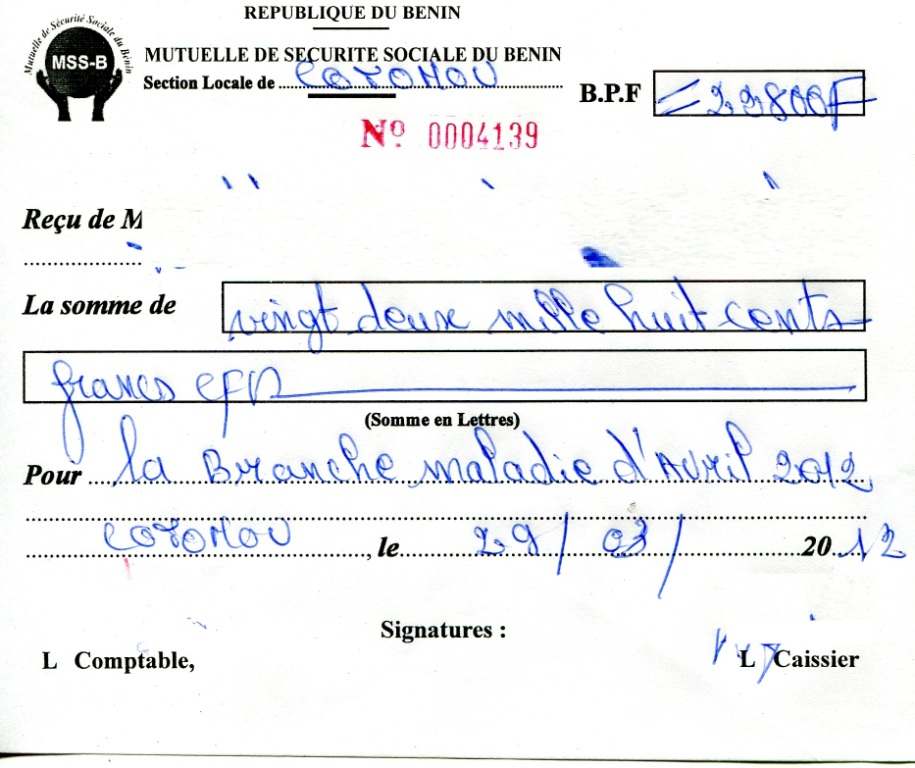 REPUBLIQUE DU BENIN
Mutuelle de Sécurité Sociale du Bénin
MSS-B
MUTUELLE DE SECURITE SOCIALE DU BENIN
Section Locale de COTONOU
B.P.F =22800F
Nº 0004139
Reçu de M
La somme de vingt deux mille huit cents
francs CFA
(Somme en Lettres)
Pour la Branche maladie d'Avril 2012
COTONOU, le 29/03/2012
Signatures :
L Comptable,
L Caissier